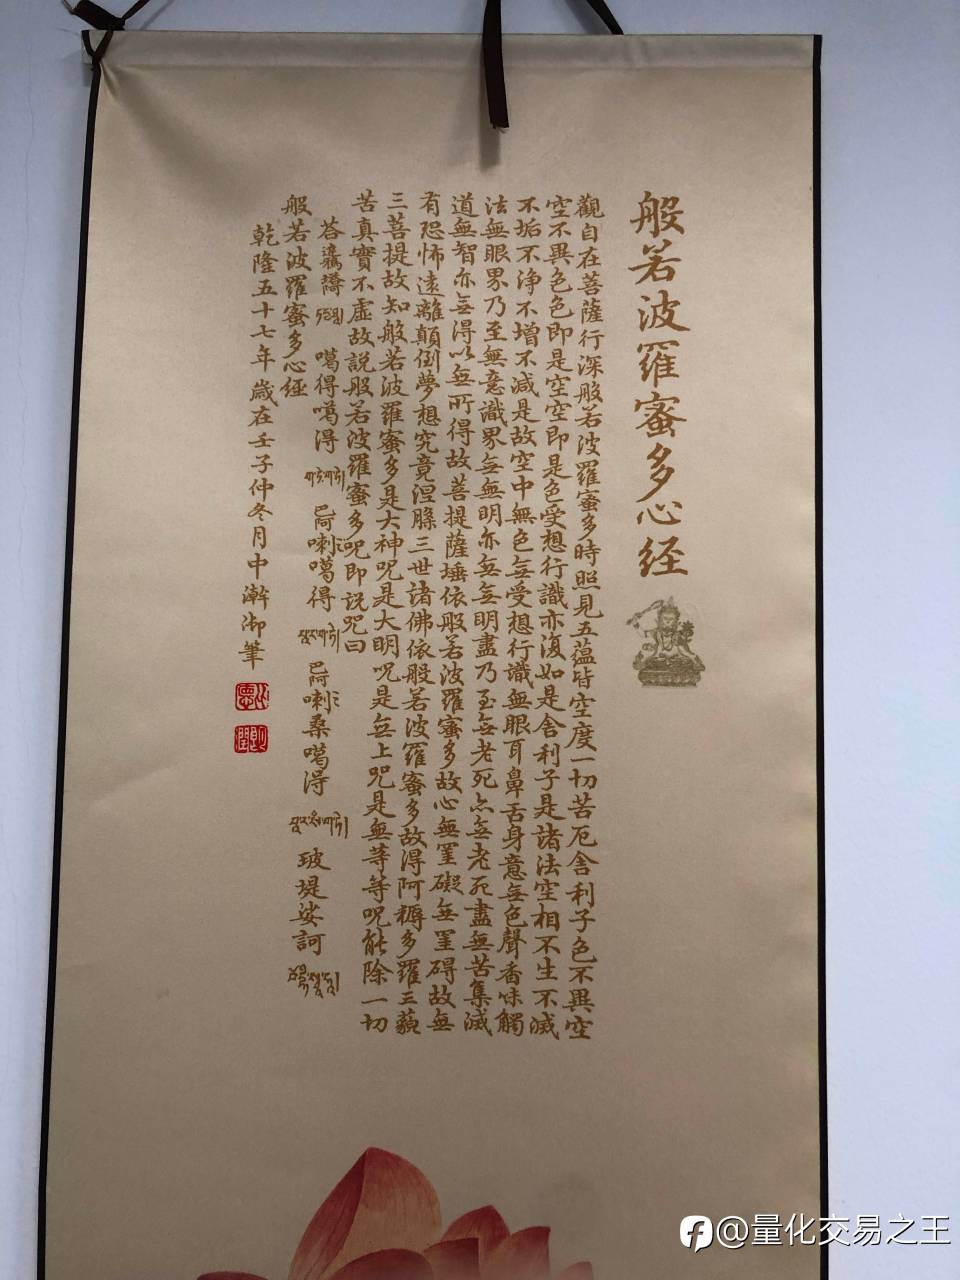 般若波羅蜜多心经
觀自在菩薩行深般若波羅蜜多時照見五蕴皆空度一切苦厄舍利子色不異空
空不異色色即是空空即是色受想行識亦復如是舍利子是諸法空相不生不滅
不垢不净不增不減是故空中無色無受想行識無眼耳鼻舌身意無色聲香味觸
法無眼界乃至無意識界無無明亦無無明盡乃至無老死亦無老死盡無苦集滅
道無智亦無得以無所得故菩提薩埵依般若波羅蜜多故心無罣礙無罣碍故無
有恐怖遠離顛倒夢想究竟涅槃三世諸佛依般若波羅蜜多故得阿耨多羅三藐
三菩提故知般若波羅蜜多是大神呪是大明呪是無上呪是無等等呪能除一切
苦真實不虛故說般若波羅蜜多呪即說呪曰
噶得噶得 巴阿喇噶得 巴阿喇桑噶得 玻堤娑訶
般若波羅蜜多心经
乾隆五十七年歲在壬子仲冬月中澣御筆
@量化交易之王